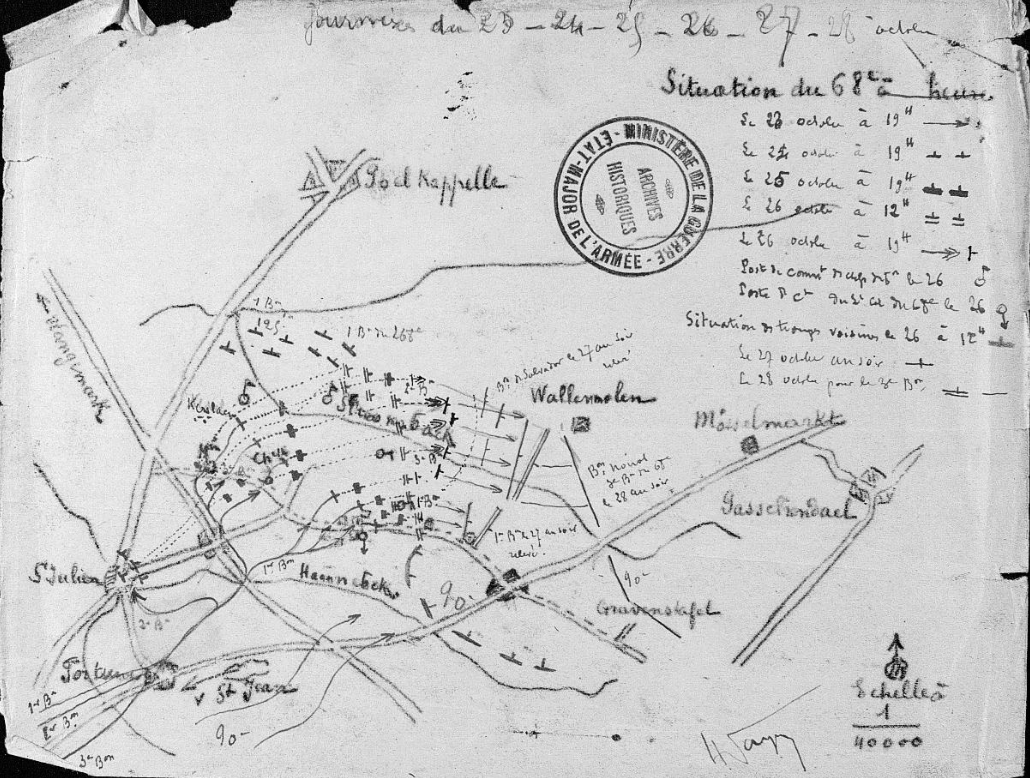 journées du 23 - 24 - 25 - 26 - 27 - 28 octobre
Situation du 68e à heure
Le 23 octobre à 19H
Le 24 octobre à 19H
Le 25 octobre à 19H
Le 26 octobre à 12H
Le 26 octobre à 19H
le 26
le 26
Situation des troupes voisines le 26 à 12H
Le 27 octobre au soir
Le 28 octobre pour le 3e Bon
MINISTÈRE DE LA GUERRE
ÉTAT-MAJOR DE L'ARMÉE
ARCHIVES
HISTORIQUES
Poel Kappelle
Langimark
1 Bn
125
1 Bn du 268e
le 27 au soir
relevé
Wallemolen
Mosselmarkt
Stroombeck
Keslaer
3e Bn
1er Bn
le 28 au soir
Gasschendael
1er Bn 27 au soir
relevé
St Julien
1er Bn
Haennebeck
90
90
Gravenstafel
2e Bn
Fortuin
St Jean
1er Bn
2e Bn
3e Bon
90
Echelle à
1
40000